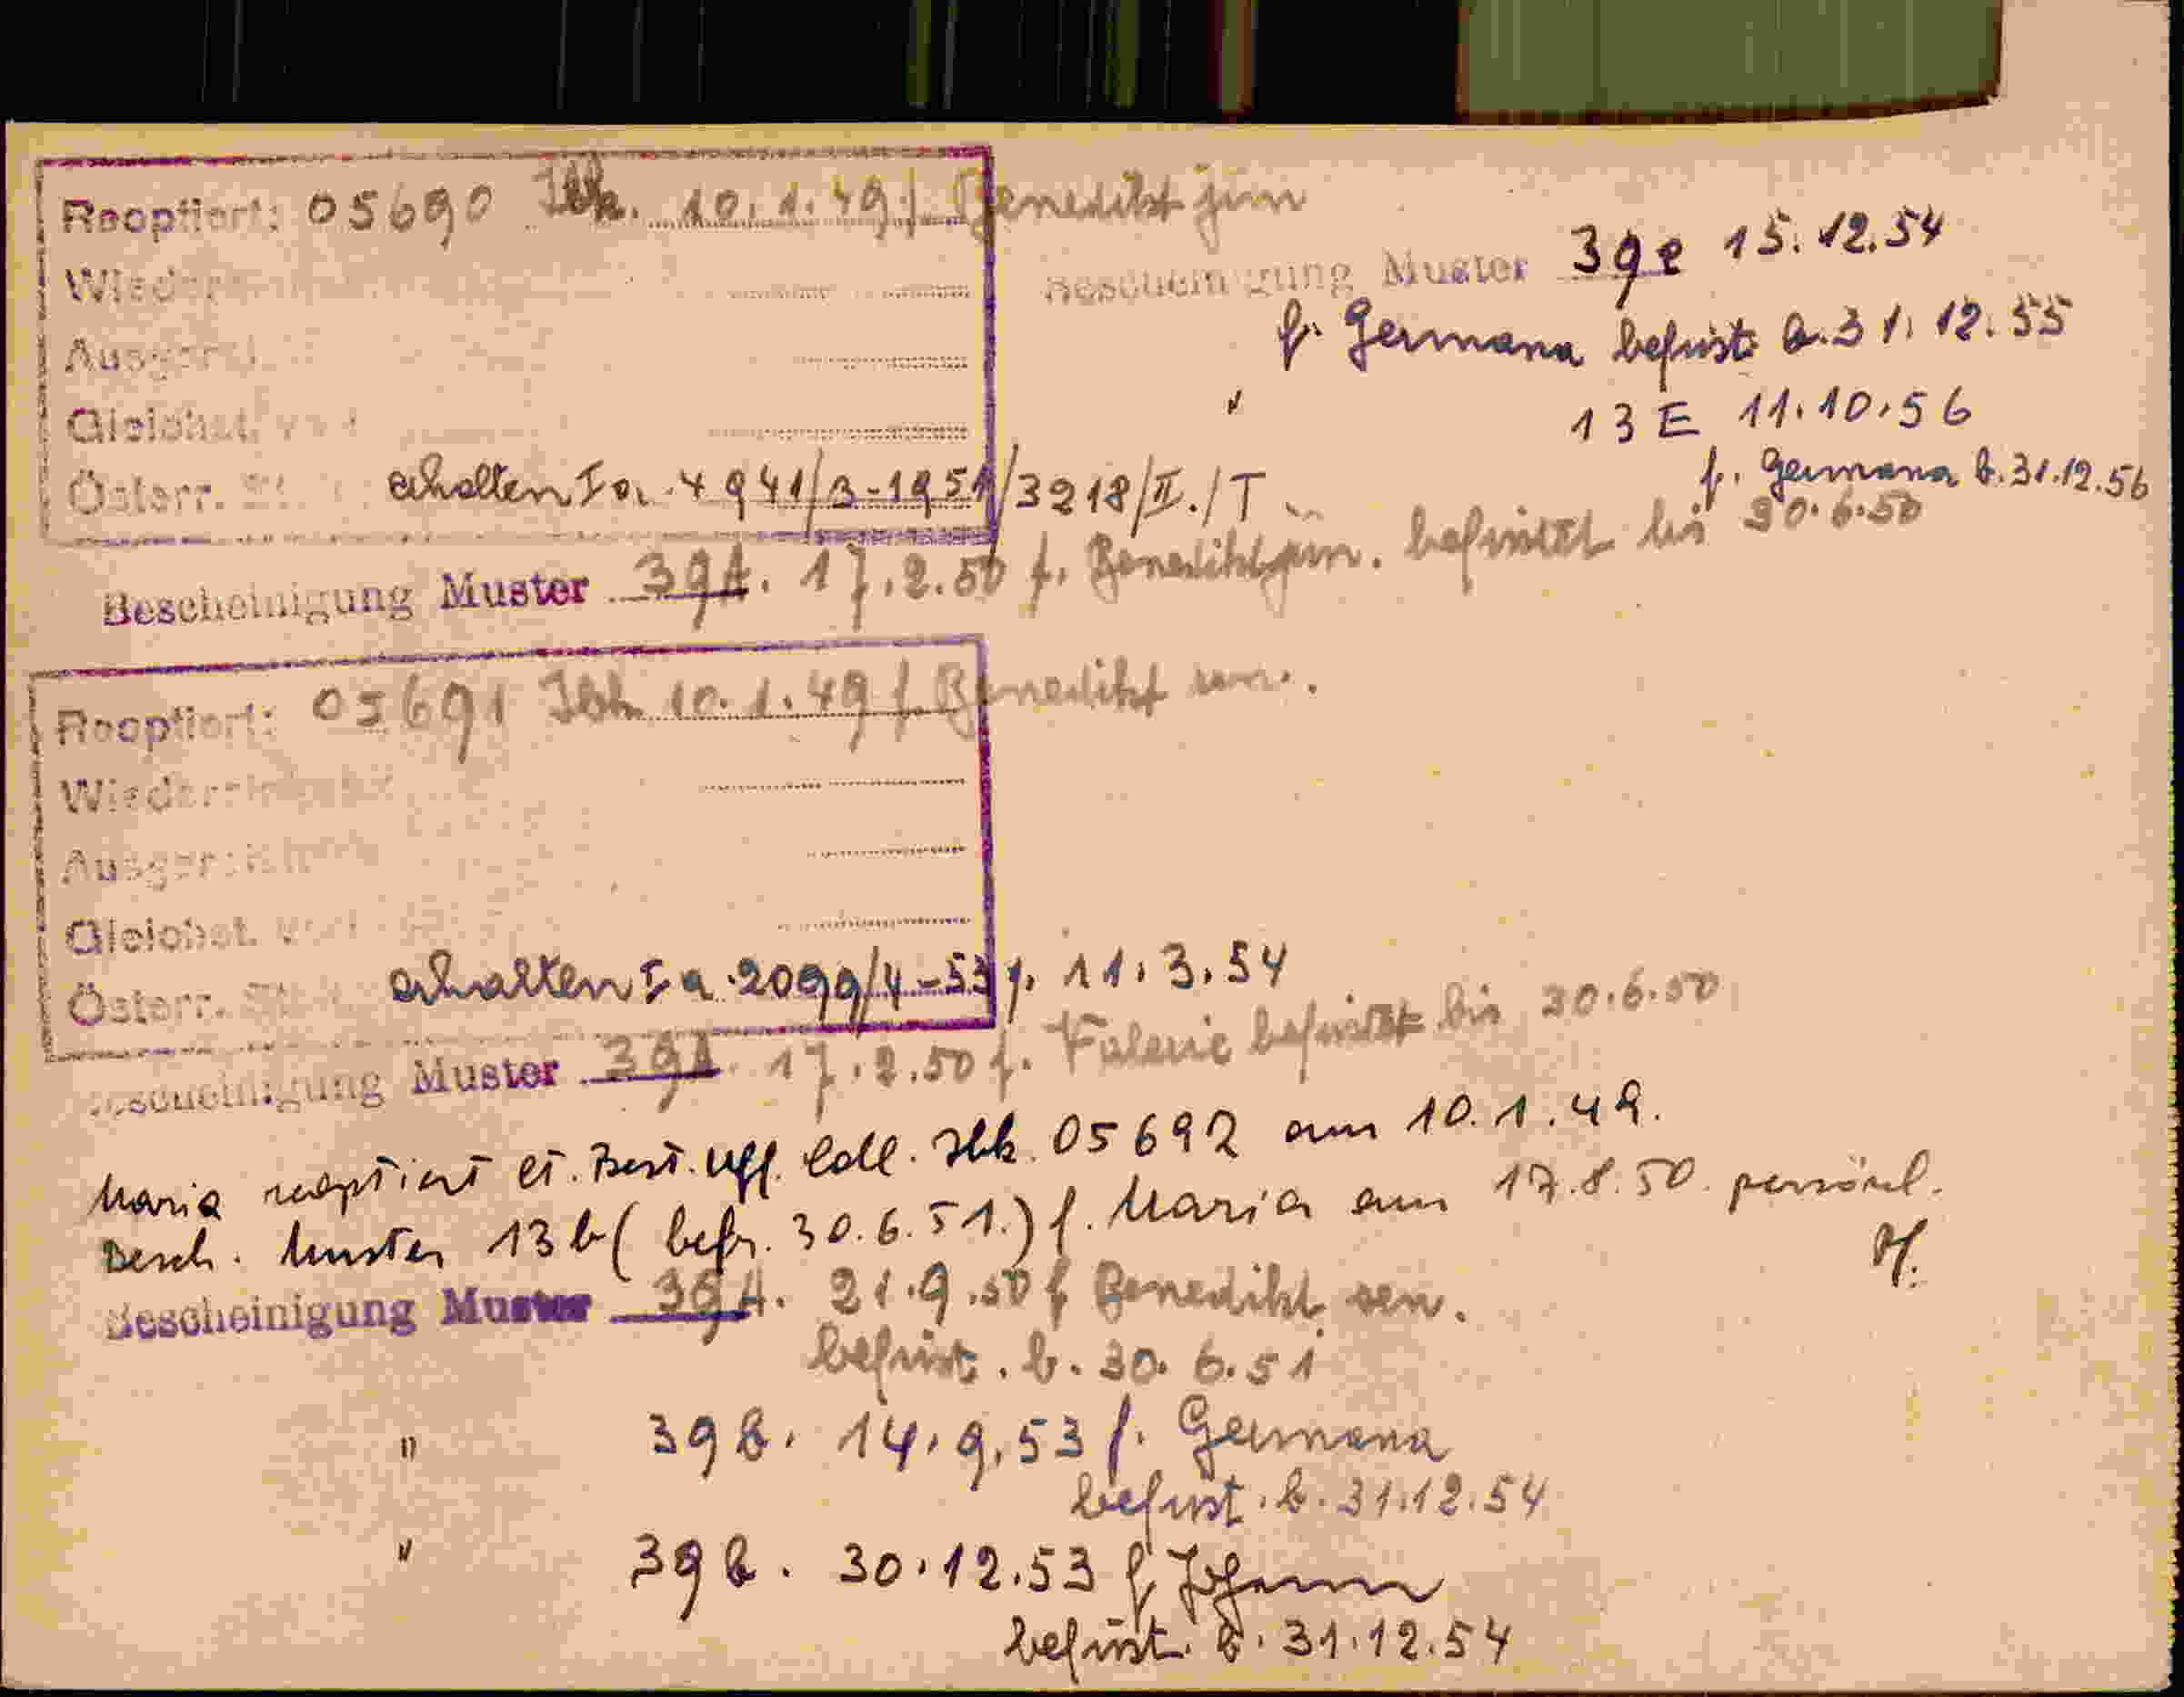 Reoptiert: 05690 Ibk. 10.1.49 f. Benedikt jun
Wieder
Ausger
Gleichst. v
Österr. St erhalten I a. 4941/3-1951/3218/II./T
Bescheinigung Muster 39A. 17.2.50 f. Benedikt jun. befristet bis 30.6.50
Bescheinigung Muster 39e 15.12.54
f. Germana befrist. b. 31.12.55
" 13E 11.10.56
f. Germana b. 31.12.56
Reoptiert: 05691 Ibk 10.1.49 f Benedikt sen.
Wieder
Ausger
Gleichst. v
Österr. St erhalten I a. 2099/4-53 f. 11.3.54
Bescheinigung Muster 39A. 17.2.50 f. Valerie befristet bis 30.6.50
Maria reoptiert lt. Best. Uff. Coll. Ibk. 05692 am 10.1.49.
Besch. Muster 13b (befr. 30.6.51.) f. Maria am 17.8.50. persönl.
Bescheinigung Muster 39A. 21.9.50 f Benedikt sen.
befrist. b. 30.6.51
" 39b. 14.9.53 f. Germana
befrist. b. 31.12.54
" 39b. 30.12.53 f Johann
befrist. b. 31.12.54